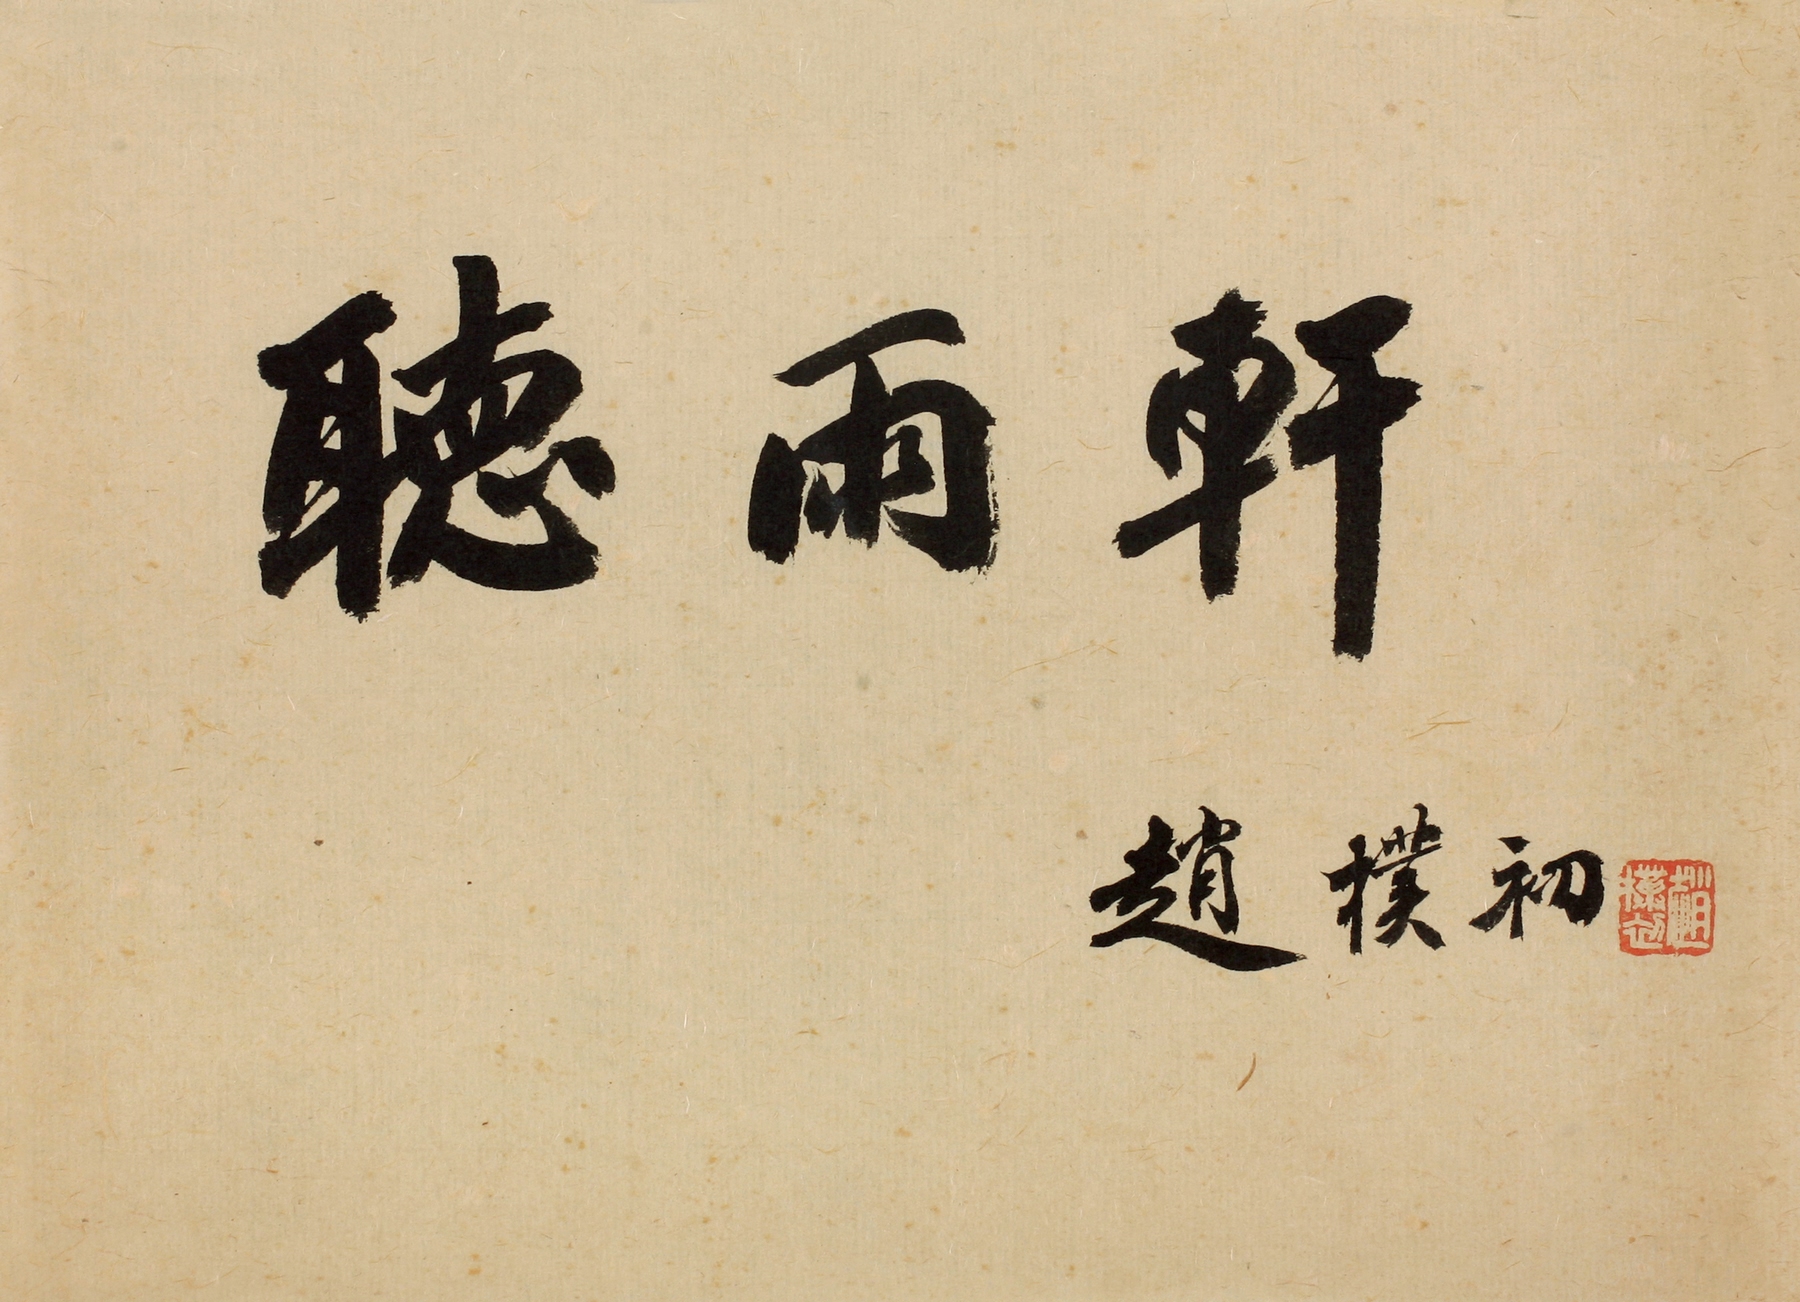 聽雨軒
趙樸初
趙樸初